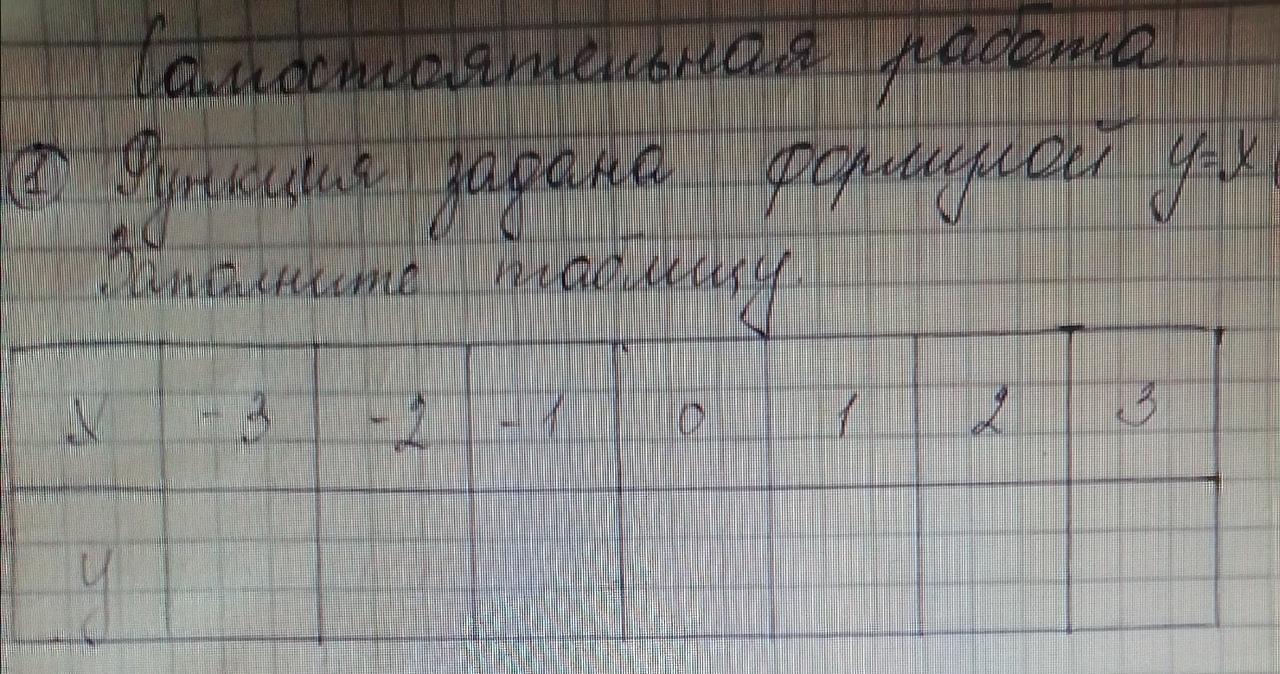 Самостоятельная работа.
① Функция задана формулой y=x
Заполните таблицу.
x -3 -2 -1 0 1 2 3
y